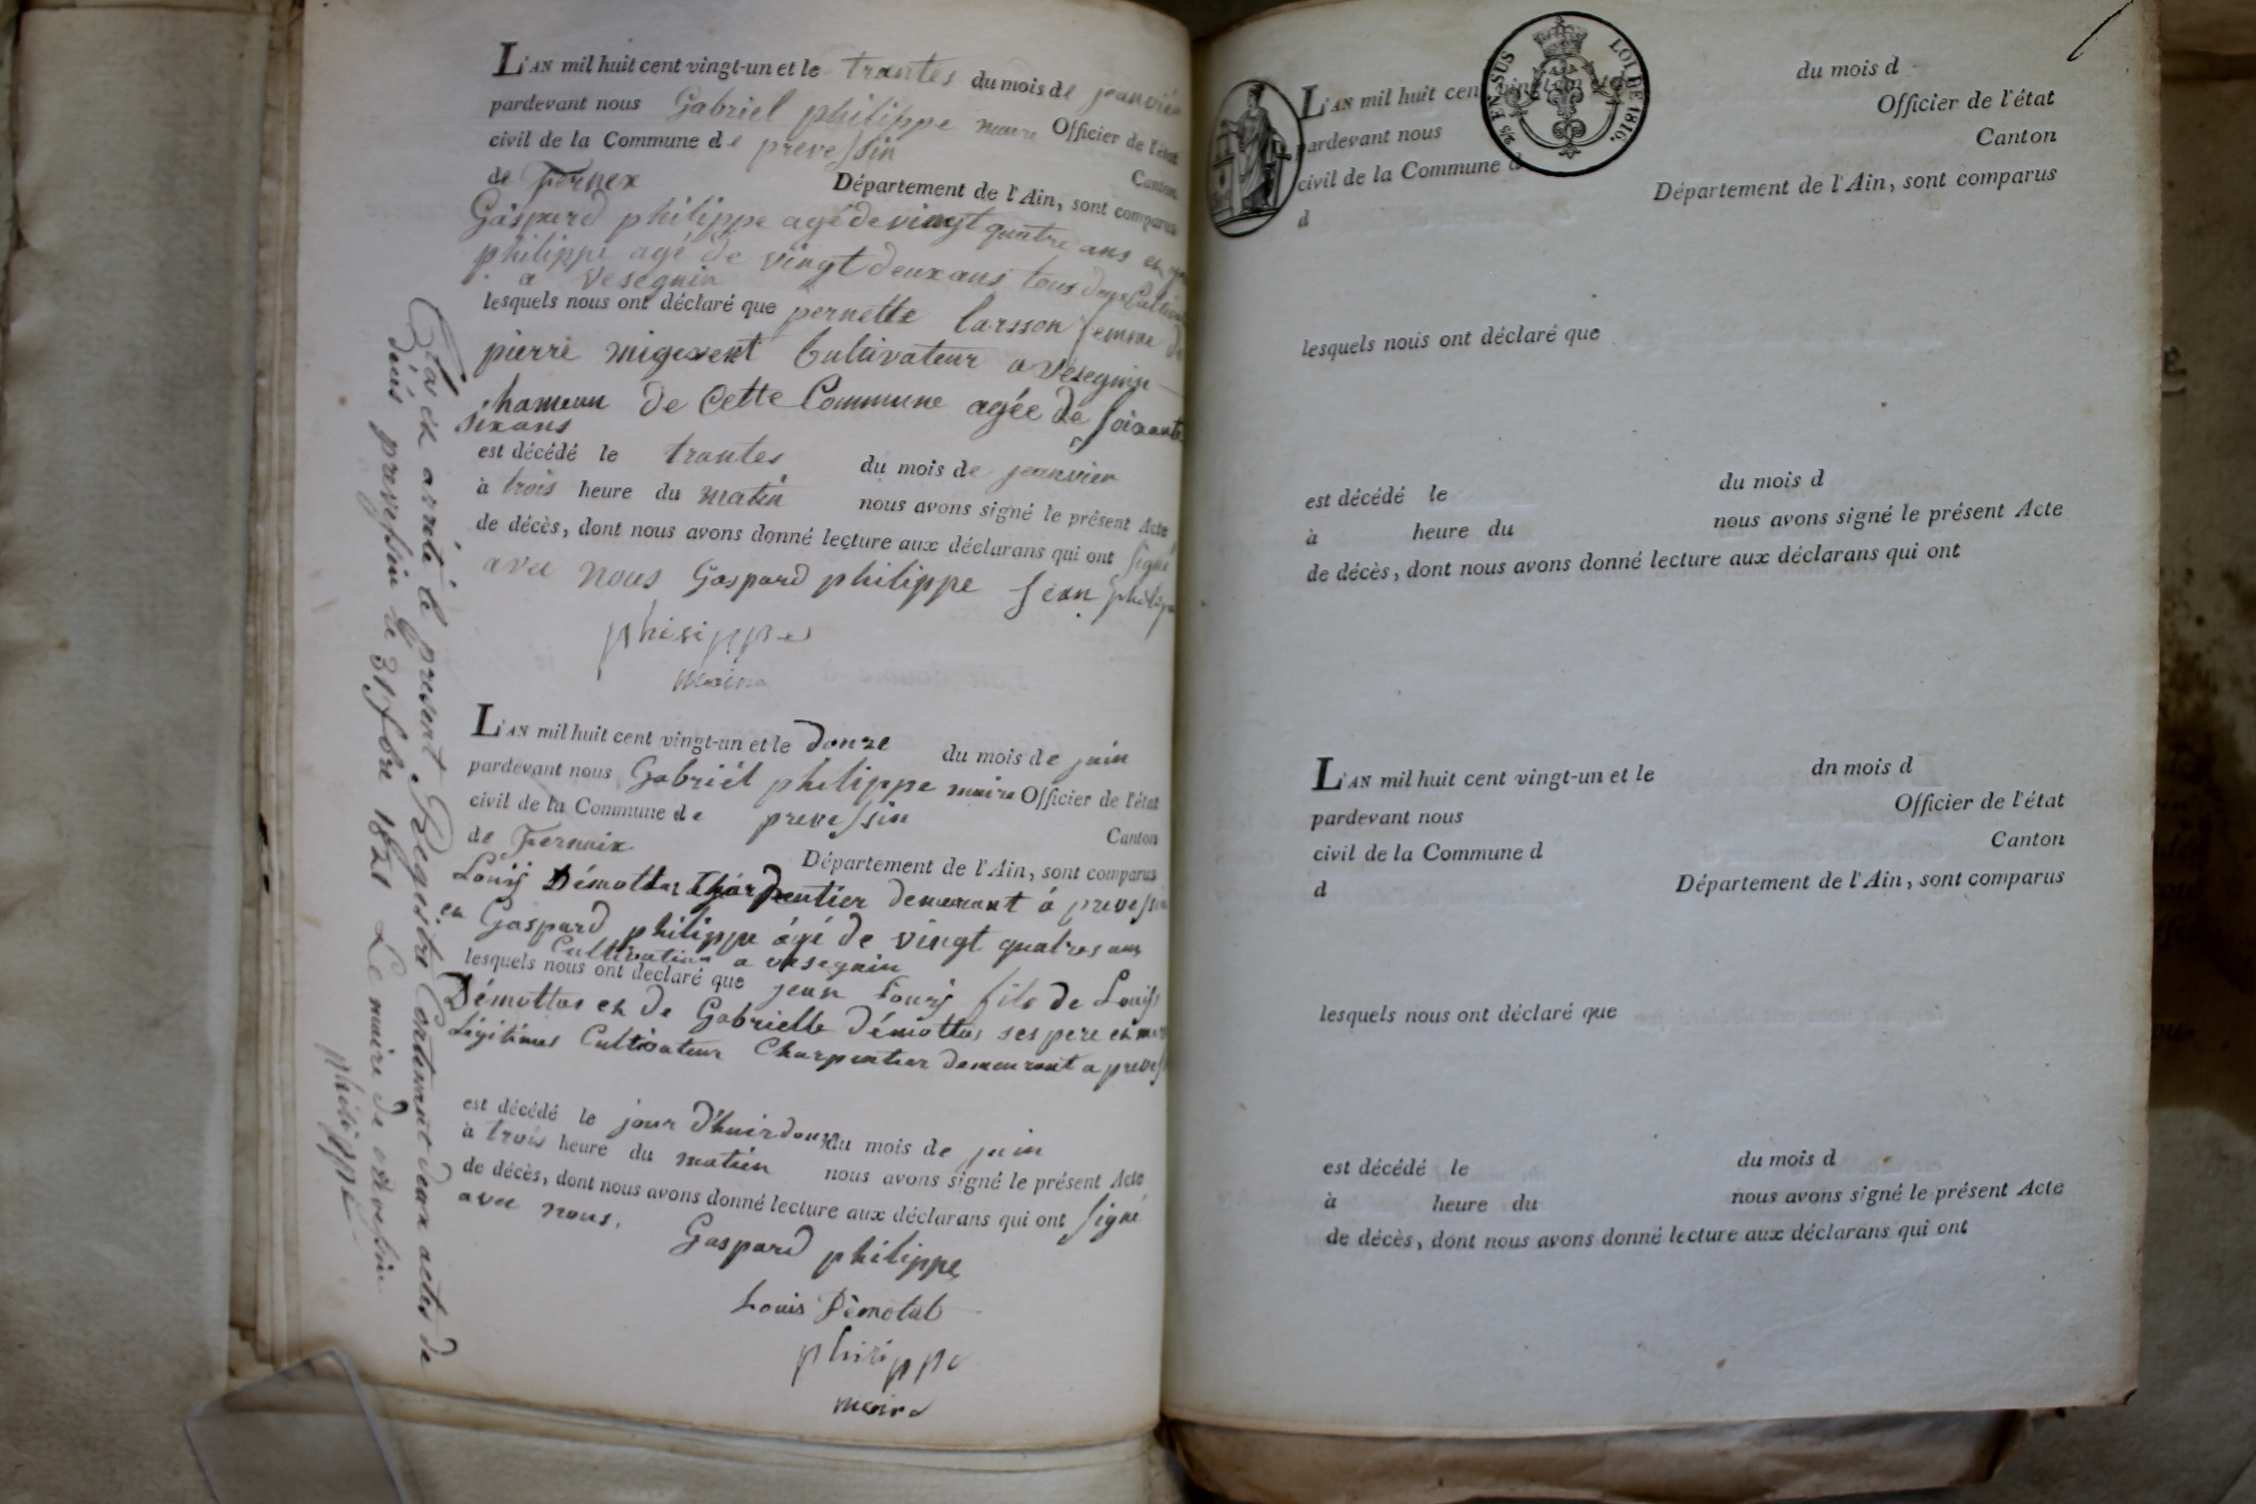 L'AN mil huit cent vingt-un et le trantes du mois de jeanvier
pardevant nous Gabriel philippe maire Officier de l'état
civil de la Commune de prevessin Canton
de Fernex Département de l'Ain, sont comparus
Gaspard philippe agé de vingt quatre ans et
philippe agé de vingt deux ans tous deux
a Vesegnin
lesquels nous ont déclaré que pernette larsson femme de
pierre migevent Cultivateur a Vésegnin
hameau de Cette Commune agée de soixante
six ans
est décédé le trantes du mois de jeanvier
à trois heure du matin nous avons signé le présent Acte
de décès, dont nous avons donné lecture aux déclarans qui ont signé
avec nous Gaspard philippe Jean philippe
philippe
maire
L'AN mil huit cent vingt-un et le douze du mois de juin
pardevant nous Gabriél philippe maire Officier de l'état
civil de la Commune de prevessin Canton
de Fernaix Département de l'Ain, sont comparus
Louis Démottas Charpentier demeurant á prevessin
en Gaspard philippe ági de vingt quatres ans
Cultivateur a vesegnin
lesquels nous ont déclaré que jean Louis fils de Louis
Démottas et de Gabrielle Démottas ses pere et mere
Légitimes Cultivateur Charpentier demeurant a preves
est décédé le jour d'huir douze du mois de juin
à trois heure du matién nous avons signé le présent Acte
de décès, dont nous avons donné lecture aux déclarans qui ont signé
avec nous.
Gaspard philippe
Louis Démotas
philippe
maire
Clos et arrété le présent Régistre Contenant deux actes de
décès prevessin le 31 Xbre 1821 Le maire de prevessin
philippe
25 EN SUS LOI DE 1816.
L'AN mil huit cent vingt-un et le du mois d
pardevant nous Officier de l'état
civil de la Commune d Canton
d Département de l'Ain, sont comparus
lesquels nous ont déclaré que
est décédé le du mois d
à heure du nous avons signé le présent Acte
de décès, dont nous avons donné lecture aux déclarans qui ont
L'AN mil huit cent vingt-un et le dn mois d
pardevant nous Officier de l'état
civil de la Commune d Canton
d Département de l'Ain, sont comparus
lesquels nous ont déclaré que
est décédé le du mois d
à heure du nous avons signé le présent Acte
de décès, dont nous avons donné lecture aux déclarans qui ont